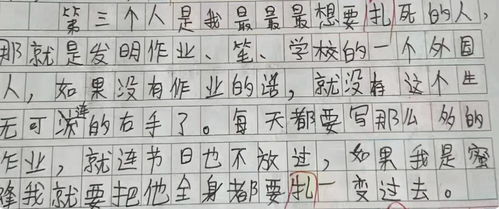 第三个人是我最最最想要扎死的人，
那就是发明作业、笔、学校的一个外国
人，如果没有作业的话，就没有这个生
无可恋的右手了。每天都要写那么多的
作业，就连节日也不放过，如果我是蜜
蜂我就要把他全身都要扎一变过去。